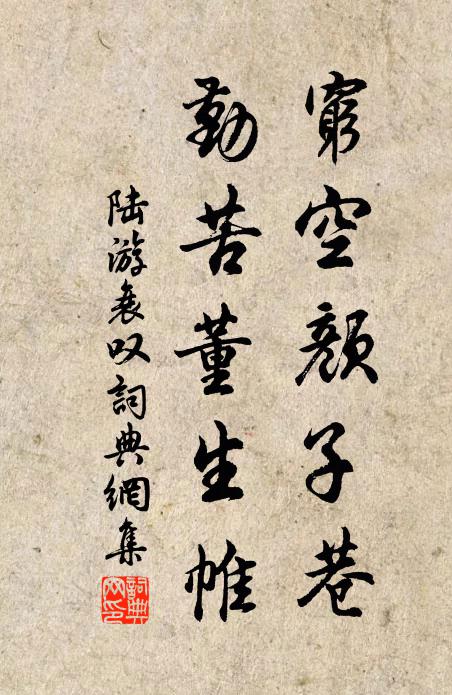 窮空顏子巷
勤苦董生帷
陆游衰叹詞典網集
詞典网印